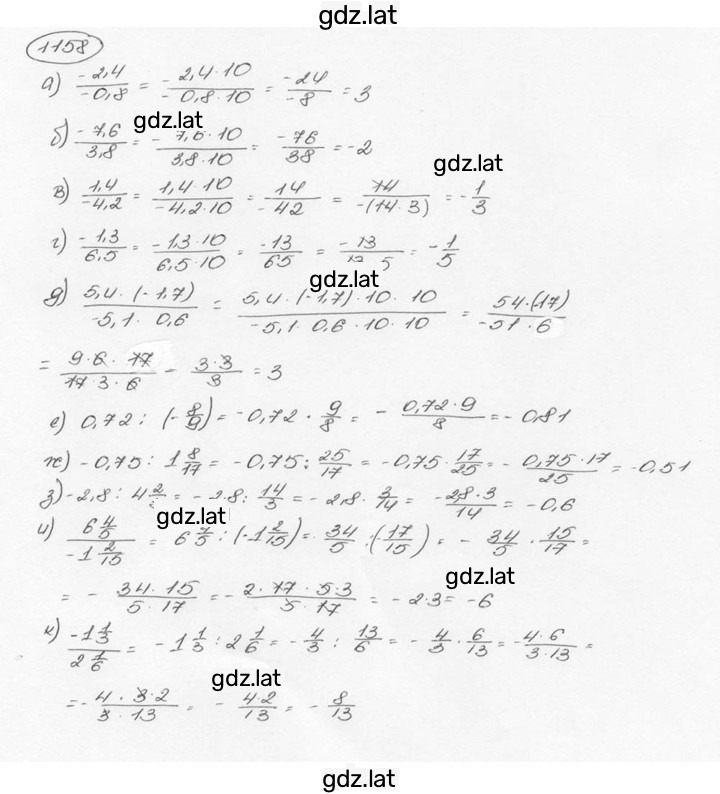 gdz.lat
1158
а) -2,4/-0,8 = -2,4·10/-0,8·10 = -24/-8 = 3
gdz.lat
б) -7,6/3,8 = -7,6·10/3,8·10 = -76/38 = -2
gdz.lat
в) 1,4/-4,2 = 1,4·10/-4,2·10 = 14/-42 = 14/-(14·3) = -1/3
г) -1,3/6,5 = -1,3·10/6,5·10 = -13/65 = -13/ 5 = -1/5
gdz.lat
д) 5,4·(-1,7)/-5,1·0,6 = 5,4·(-1,7)·10·10/-5,1·0,6·10·10 = 54·(-17)/-51·6
= 9·6·17/17·3·6 - 3·3/3 = 3
е) 0,72 : (-8/9) = -0,72 · 9/8 = - 0,72·9/8 = -0,81
ж) -0,75 : 1 8/17 = -0,75 : 25/17 = -0,75 · 17/25 = - 0,75·17/25 = -0,51
з) -2,8 : 4 2/ = -2,8 : 14/3 = -2,8 · 3/14 = -2,8·3/14 = -0,6
gdz.lat
и) 6 4/5/-1 2/15 = 6 4/5 : (-1 2/15) = 34/5 : (-17/15) = - 34/5 · 15/17 =
gdz.lat
= - 34·15/5·17 = - 2·17·5·3/5·17 = -2·3 = -6
к) -1 1/3/2 1/6 = -1 1/3 : 2 1/6 = -4/3 : 13/6 = -4/3 · 6/13 = -4·6/3·13 =
gdz.lat
= - 4·3·2/3·13 = - 4·2/13 = - 8/13
gdz.lat